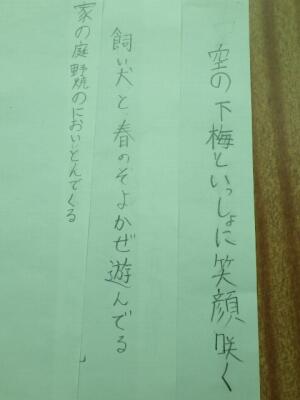 空の下梅といっしょに笑顔咲く
飼い犬と春のそよかぜ遊んでる
家の庭野焼のにおいとんでくる